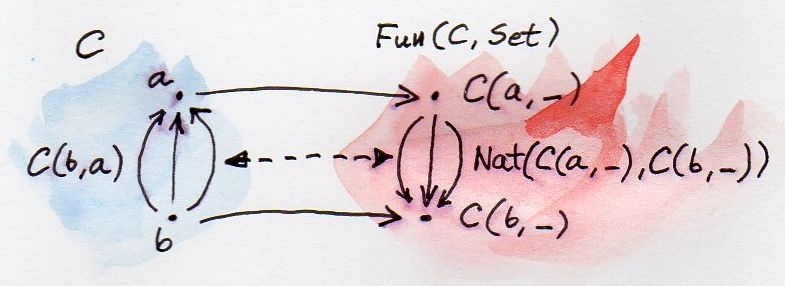 C
Fun(C, Set)
a
C(a,-)
C(b,a)
Nat(C(a,-),C(b,-))
b
C(b,-)